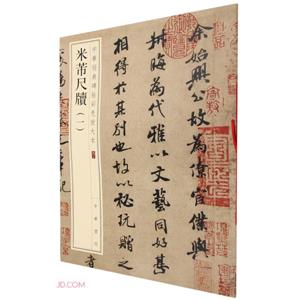 余始興公故為僚宦僕與
叔晦為代雅以文藝同好甚
相得於其別也故以秘玩贈之
者
中華經典碑帖彩色放大本
米芾尺牘（一）
中華書局
JD.COM